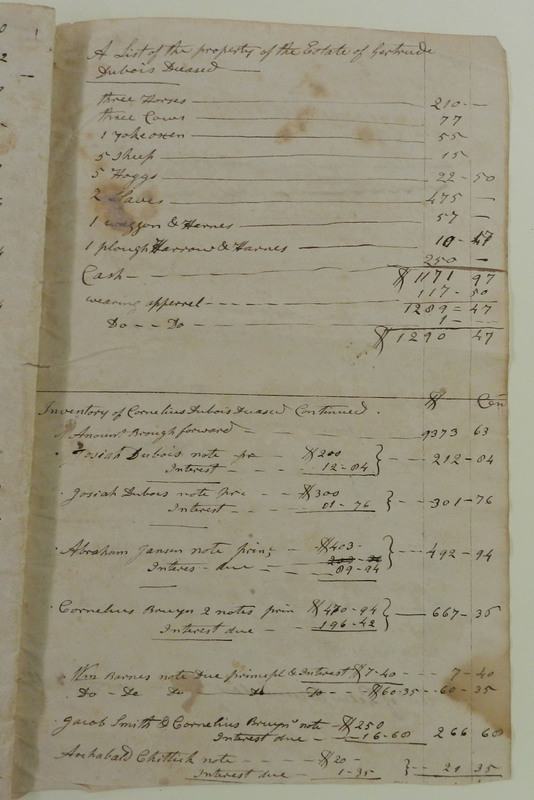 A List of the property of the Estate of Gertrude
Dubois Deased
three Horses 210 -
three Cows 77
1 yoke oxen 55
5 Sheep 15
5 Hoggs 22 - 50
2 Slaves 475 -
1 waggon & Harnes 57 -
1 plough Harrow & Harnes 10 - 47
250 -
Cash $1171 97
wearing apperrel 117 - 50
1289 = 47
Do - - Do 1 -
$1290 47
Inventory of Cornelius Dubois Deased Continued. $ Cen
Amount Brough forward 9373 63
Josiah Dubois note $200
Interest 12-84 } 212-84
Josiah Dubois note $300
Interest 01-76 } 301-76
Abraham Jansen note prin: $403-
Interes - due 89-94 } 492-94
Cornelius Bruyn 2 notes prin $470-94
Interest due 196-42 } 667-35
Wm Barnes note Due principl & Interest $7-40 7-40
Do - Do Do Do Do $60-35 60-35
Jacob Smith & Cornelius Bruyn note $250
Interest due 16-60 266 60
Archabald Chittick note $20-
Interest due 1-35 } 21 35